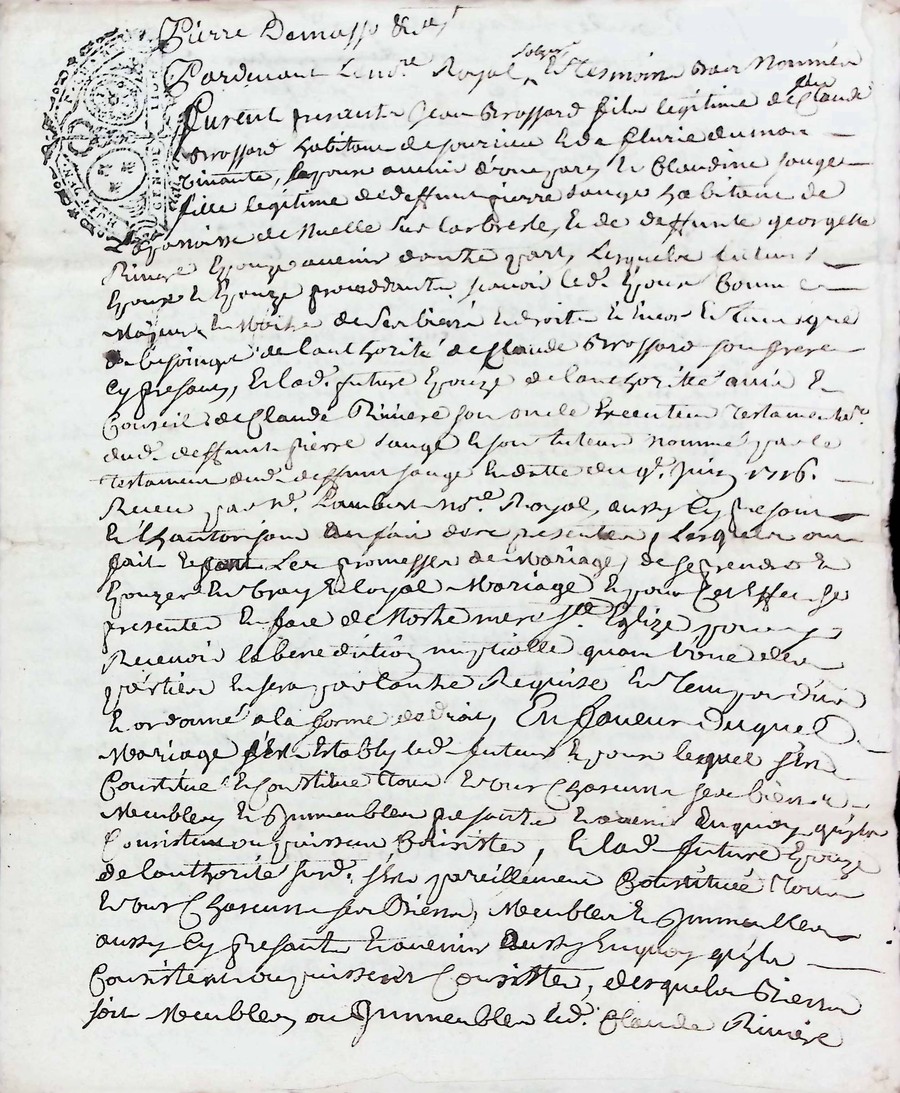 Pierre Damasse &
Pardevant le no.re Royal sobz.né Et tesmoins bas Nommés
furent presants Jean Brossard fils legitime de feu Claude
Brossard habitant de sourcieu Et de Fleurie dumas
vivants, Epoux avenir d'une part, Et Claudine sauge
fille legitime de deffunt pierre sauge habitant de
La parroisse de Nuelle sur Larbresle, Et de deffunte georgette
Riviere Epouze avenir dautre part, Lesquels futurs
Epoux Et Epouze proceddants scavoir led. Epoux Comme
Majeur, Et Maitre de ses biens Et droits Et Encor Entant que
de besoingt de lauthorité de Claude Brossard son frere
Cy presant, Et lad. future Epouze de lauthorité avis Et
Conseil de Claude Riviere son oncle Executeur testamentre.
dud. deffunt pierre sauge Et son tuteur nommé par le
testament dud. deffunt sauge En datte du 9e. Juin 1716.
Receu par Me. Lambert No.re Royal, aussy Cy presant
Et Lhautorisant au fait des presentes, Lesquels ont
fait Et font Les promesses de Mariage, de se prendre Et
Epouzer En vray Et loyal Mariage Et pour Cet Effet se
presenter En face de Nostre mere Ste. Eglize pour y
Recevoir la benediction nuptialle quant l'une des
parties En sera par lautre Requise En temps deu
Et ordonné a la forme du droit, En faveur Duquel
Mariage s'est Estably led. futur Epoux lequel s'est
Constitué Et Constitue tous Et uns Chascuns ses biens
Meubles Et Immeubles presants Et avenir Enquoy quils
Consistent ou puissent Consister, Et lad. future Epouze
de lauthorité surd. s'est pareillement Constituée tous
Et uns Chascuns ses Biens, Meubles Et Immeubles
aussy Cy presants Et avenir Aussy Enquoy quils
Consistent ou puissent Consister, desquels Biens
soit Meubles ou Immeubles led. Claude Riviere